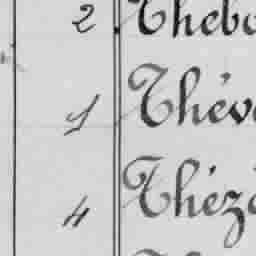 2 Thebo
1 Théve
4 Théza